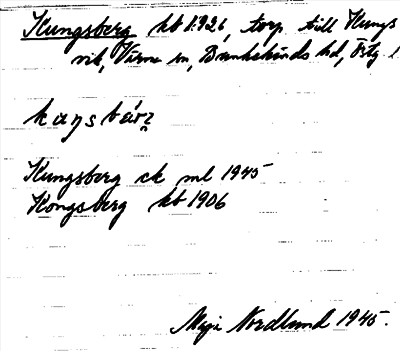 Kungsberg kb 1:926, torp till Kungs
vik, Värna sn, Bankekinds hd, Östg l
kuŋsbärʒ
Kungsberg ck ml 1945
Kongsberg kb 1906
Maja Nordlund 1945.